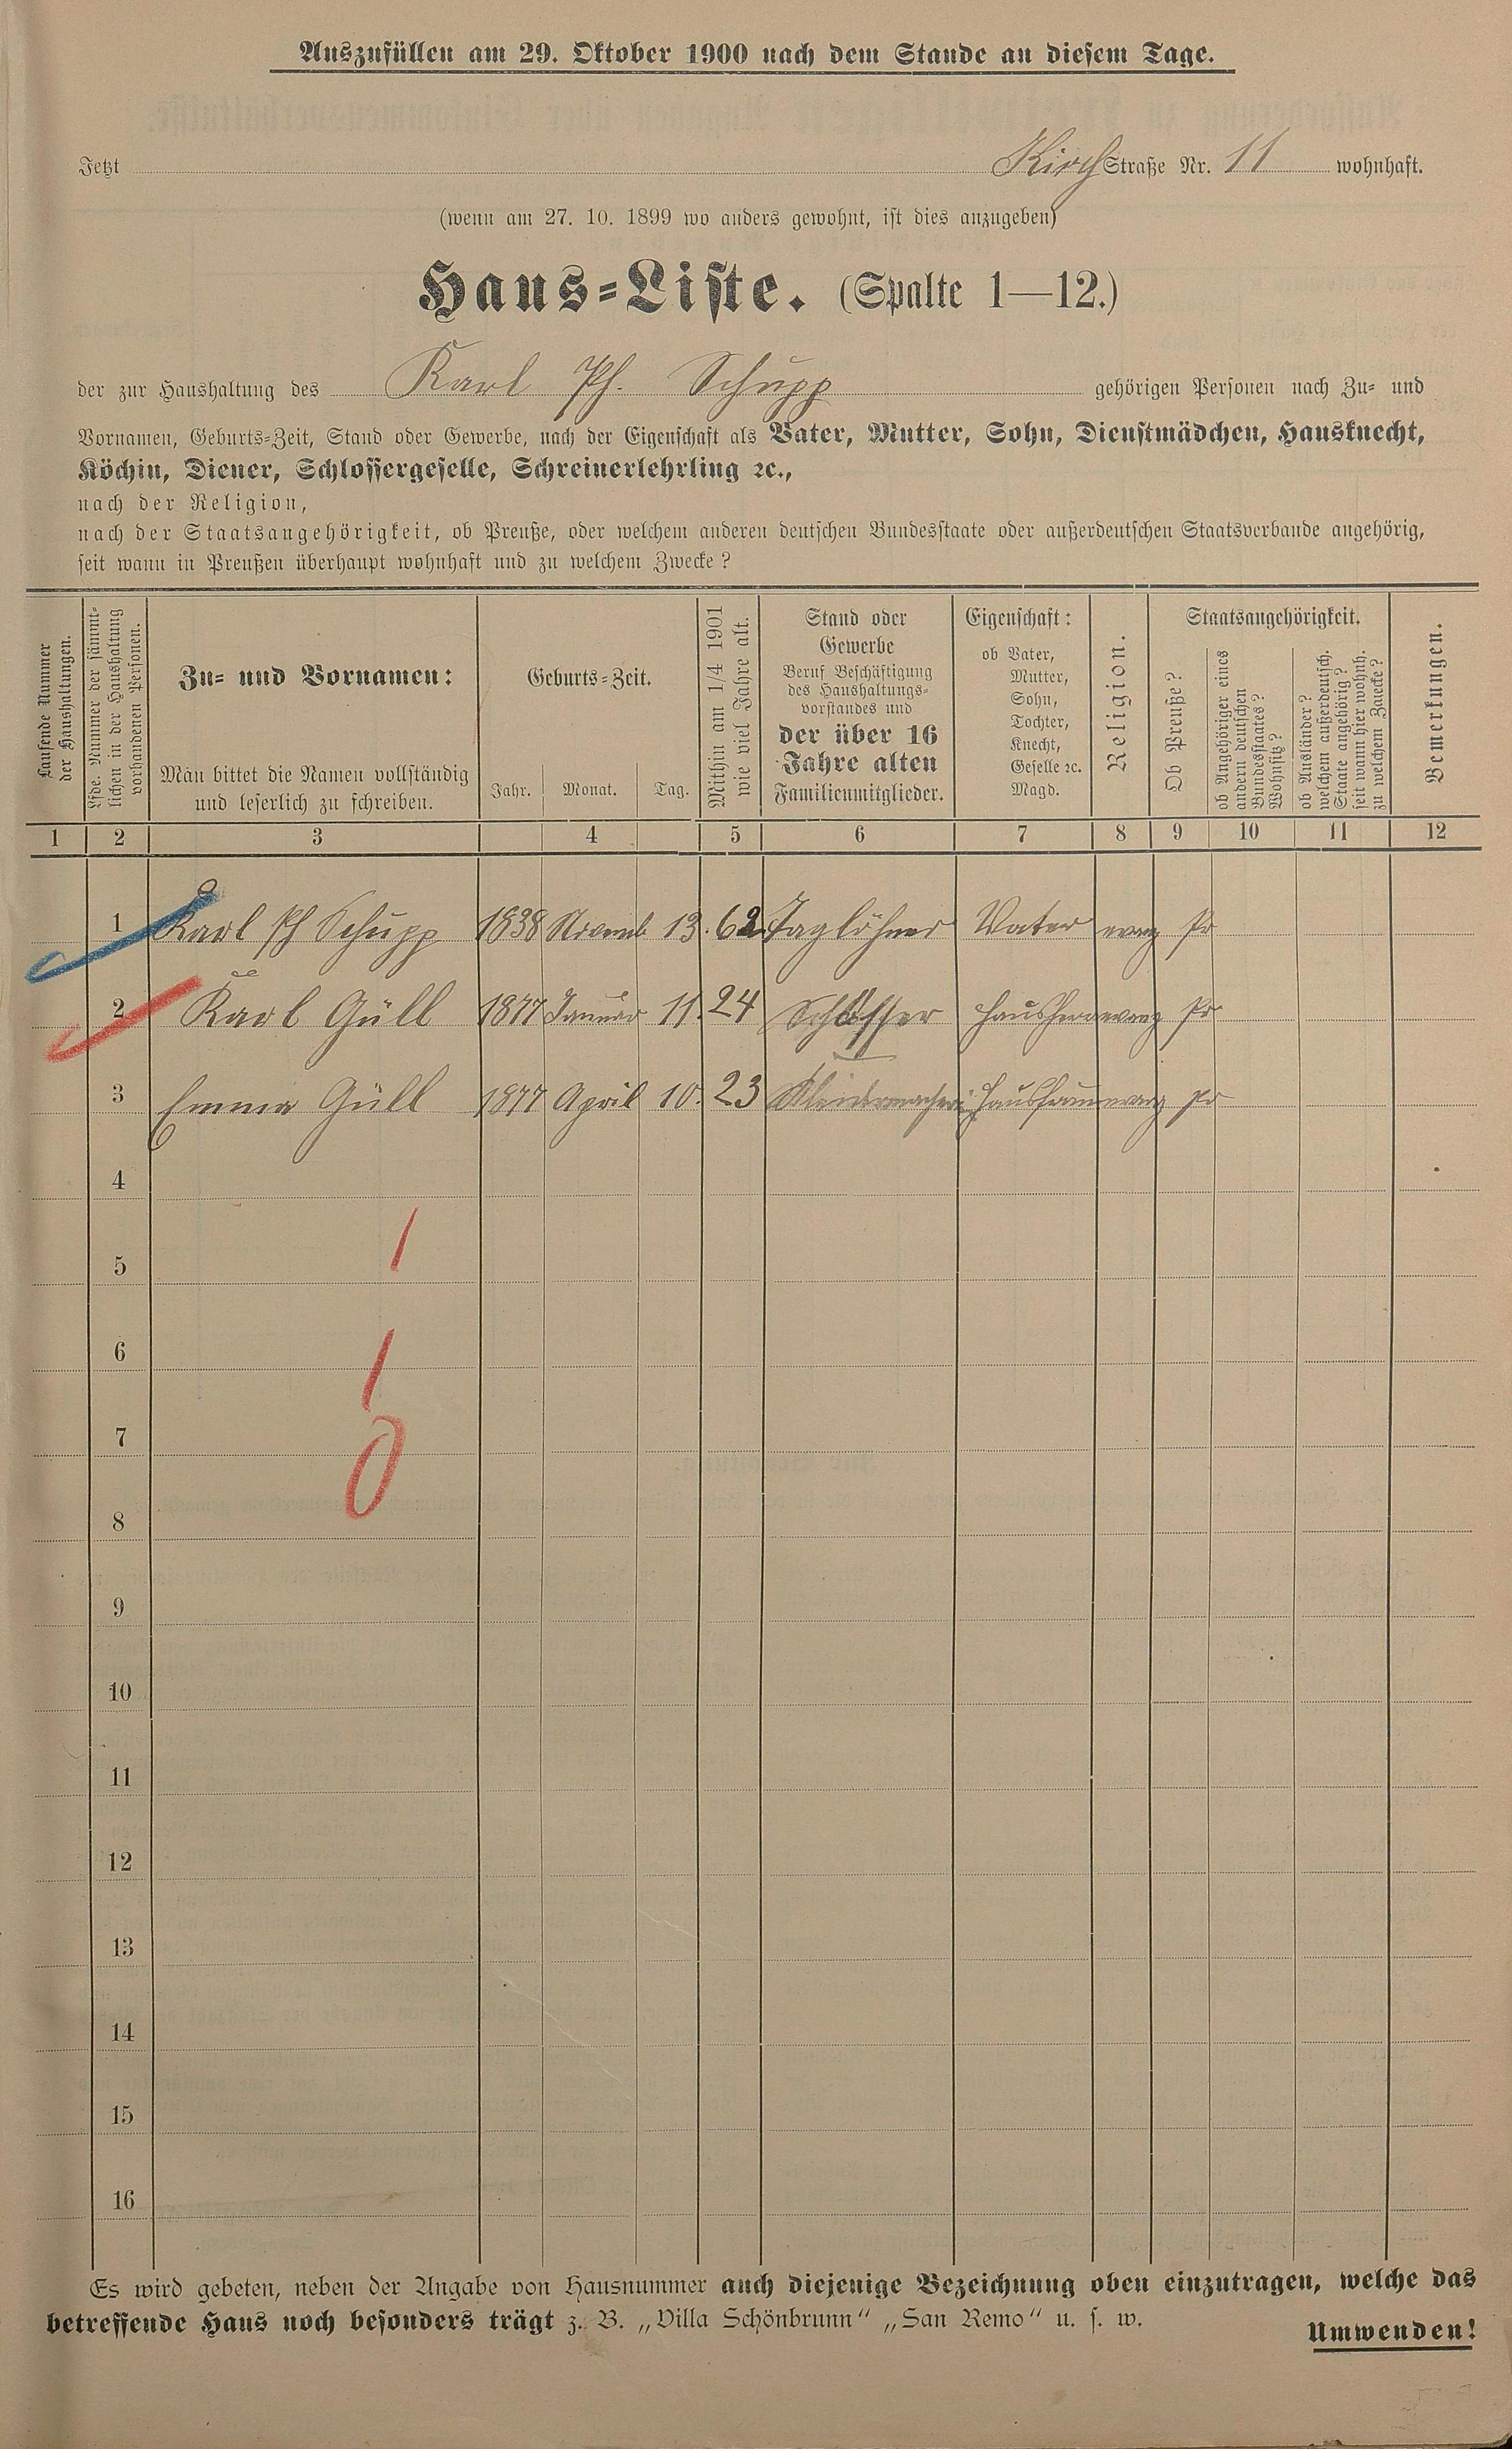 Auszufüllen am 29. Oktober 1900 nach dem Stande an diesem Tage.
Jetzt Kirch Straße Nr. 11 wohnhaft.
(wenn am 27. 10. 1899 wo anders gewohnt, ist dies anzugeben)
Haus-Liste. (Spalte 1—12.)
der zur Haushaltung des Karl Ph. Schupp gehörigen Personen nach Zu- und
Vornamen, Geburts-Zeit, Stand oder Gewerbe, nach der Eigenschaft als Vater, Mutter, Sohn, Dienstmädchen, Hausknecht,
Köchin, Diener, Schlossergeselle, Schreinerlehrling ꝛc.,
nach der Religion,
nach der Staatsangehörigkeit, ob Preuße, oder welchem anderen deutschen Bundesstaate oder außerdeutschen Staatsverbande angehörig,
seit wann in Preußen überhaupt wohnhaft und zu welchem Zwecke?
Laufende Nummer
der Haushaltungen.
Lfde. Nummer der sämmt-
lichen in der Haushaltung
vorhandenen Personen.
Zu- und Vornamen:
Man bittet die Namen vollständig
und leserlich zu schreiben.
Geburts-Zeit.
Jahr. Monat. Tag.
Mithin am 1/4 1901
wie viel Jahre alt.
Stand oder
Gewerbe
Beruf Beschäftigung
des Haushaltungs-
vorstandes und
der über 16
Jahre alten
Familienmitglieder.
Eigenschaft:
ob Vater,
Mutter,
Sohn,
Tochter,
Knecht,
Geselle ꝛc.
Magd.
Religion.
Staatsangehörigkeit.
Ob Preuße?
ob Angehöriger eines
andern deutschen
Bundesstaates?
Wohnsitz?
ob Ausländer?
welchem außerdeutsch.
Staate angehörig?
seit wann hier wohnh.
zu welchem Zwecke?
Bemerkungen.
1 2 3 4 5 6 7 8 9 10 11 12
1 Karl Ph Schupp 1838 Novemb 13. 62 Taglöhner Vater evang Pr
2 Karl Güll 1877 Januar 11. 24 Schlosser Hausherr evang Pr
3 Emma Güll 1877 April 10. 23 Kleidermacherin Hausfrau evang Pr
4
5
6
7
8
9
10
11
12
13
14
15
16
1
1
0
Es wird gebeten, neben der Angabe von Hausnummer auch diejenige Bezeichnung oben einzutragen, welche das
betreffende Haus noch besonders trägt z. B. „Villa Schönbrunn“ „San Remo“ u. s. w.
Umwenden!